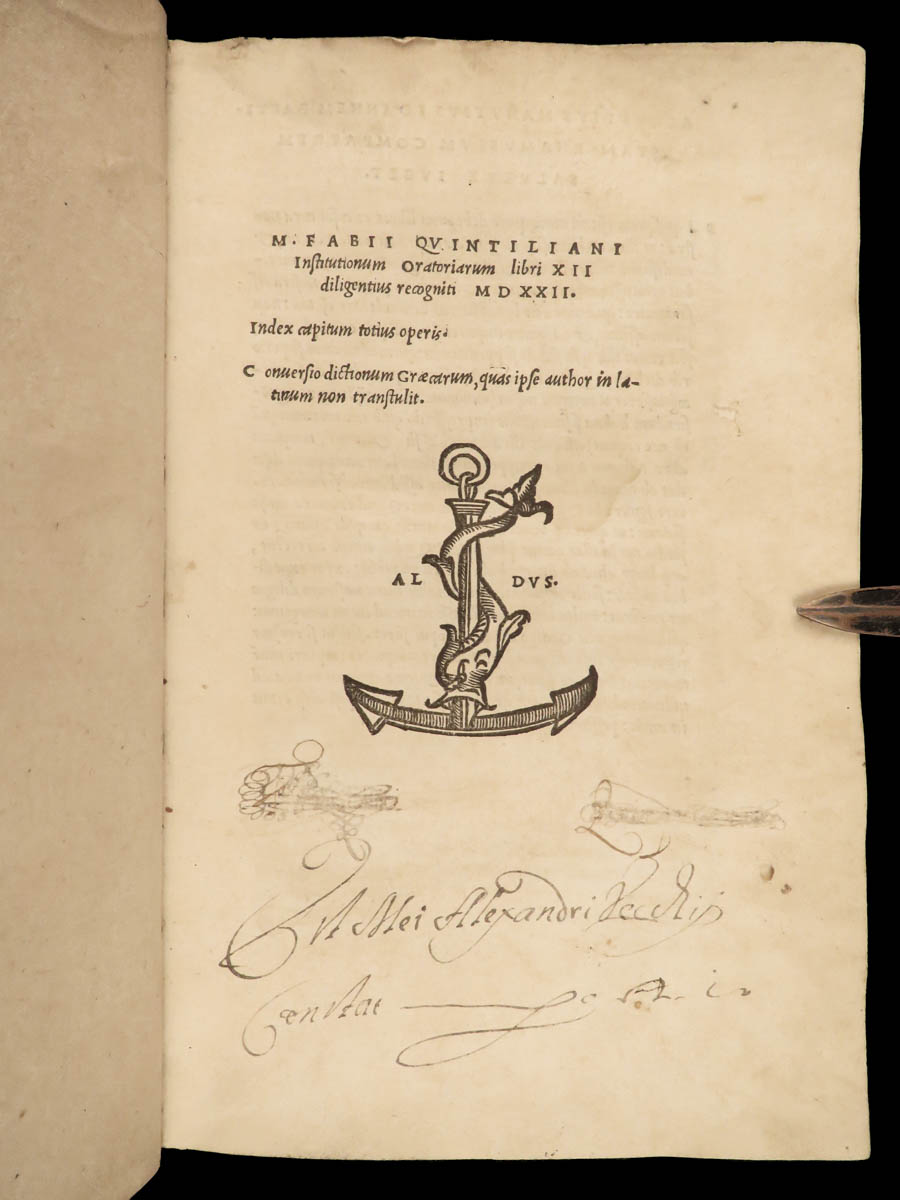 M. FABII QVINTILIANI
Institutionum Oratoriarum libri XII
diligentius recogniti MDXXII.
Index capitum totius operis.
Conuersio dictionum Græcarum, quas ipse author in la-
tinum non transtulit.
AL DVS.
Mei Alexandri